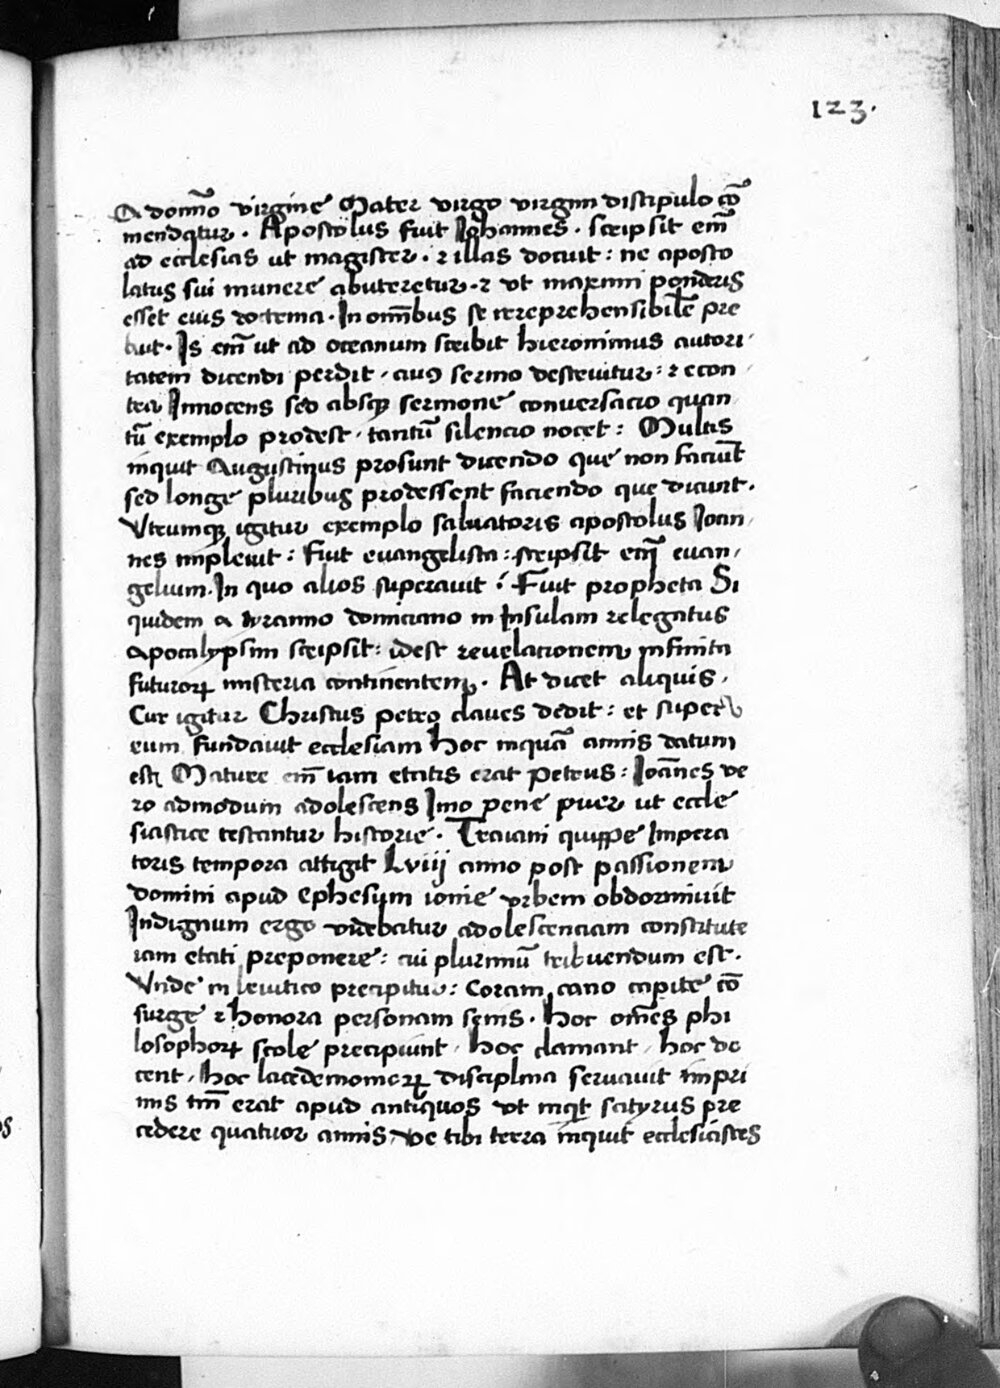 123.
A domīo virgine Mater virgo virgini discipulo cō
mendatur. Apostolus fuit Iohannes. scripsit em̄
ad ecclesias ut magister. ⁊ illas docuit: ne aposto
latus sui munere abuteretur. ⁊ vt maximi ponderis
esset eius doctrina. In om̄ibus se irreprehensibilē pre
buit. Is em̄ ut ad oceanum scribit hieronimus autori
tatem dicendi perdit, cuiꝰ sermo destruitur: ⁊ econ
tra Innocens sed absqꝫ sermone conversacio quan
tū exemplo prodest, tantū silencio nocet: Multis
inquit Augustinus prosunt dicendo que non faciūt
sed longe pluribus prodessent faciendo que dicunt.
Vtrumqꝫ igitur exemplo saluatoris apostolus Ioan
nes impleuit: Fuit euangelista: scripsit em̄ euan
gelium. In quo alios superauit: Fuit propheta Si
quidem a tyranno domiciano in Insulam relegatus
apocalypsim scripsit: idest reuelationem infinita
futurorꝝ misteria continentem. At dicet aliquis,
Cur igitur Christus petro claues dedit: et super
eum fundauit ecclesiam hoc inquā annis datum
est Mature em̄ iam etatis erat Petrus: Ioānes ve
ro admodum adolescens Imo pene puer ut eccle
siastice testantur historie. Traiani quippe Impera
toris tempora attigit Lviij anno post passionem
domini apud Ephesum ionie vrbem obdormiuit
Indignum ergo videbatur adolescenciam constitute
iam etati preponere: cui plurimū tribuendum est.
Vnde in leuitico precipitur: Coram cano capite cō
surge ⁊ honora personam senis. hoc om̄es phi
losophorꝝ scole precipiunt, hoc clamant, hoc do
cent, hoc lacedemoniorꝝ disciplina seruauit impri
mis tm̄ erat apud antiquos vt inqͥt satyrus pre
cedere quatuor annis, ve tibi terra inquit ecclesiastes